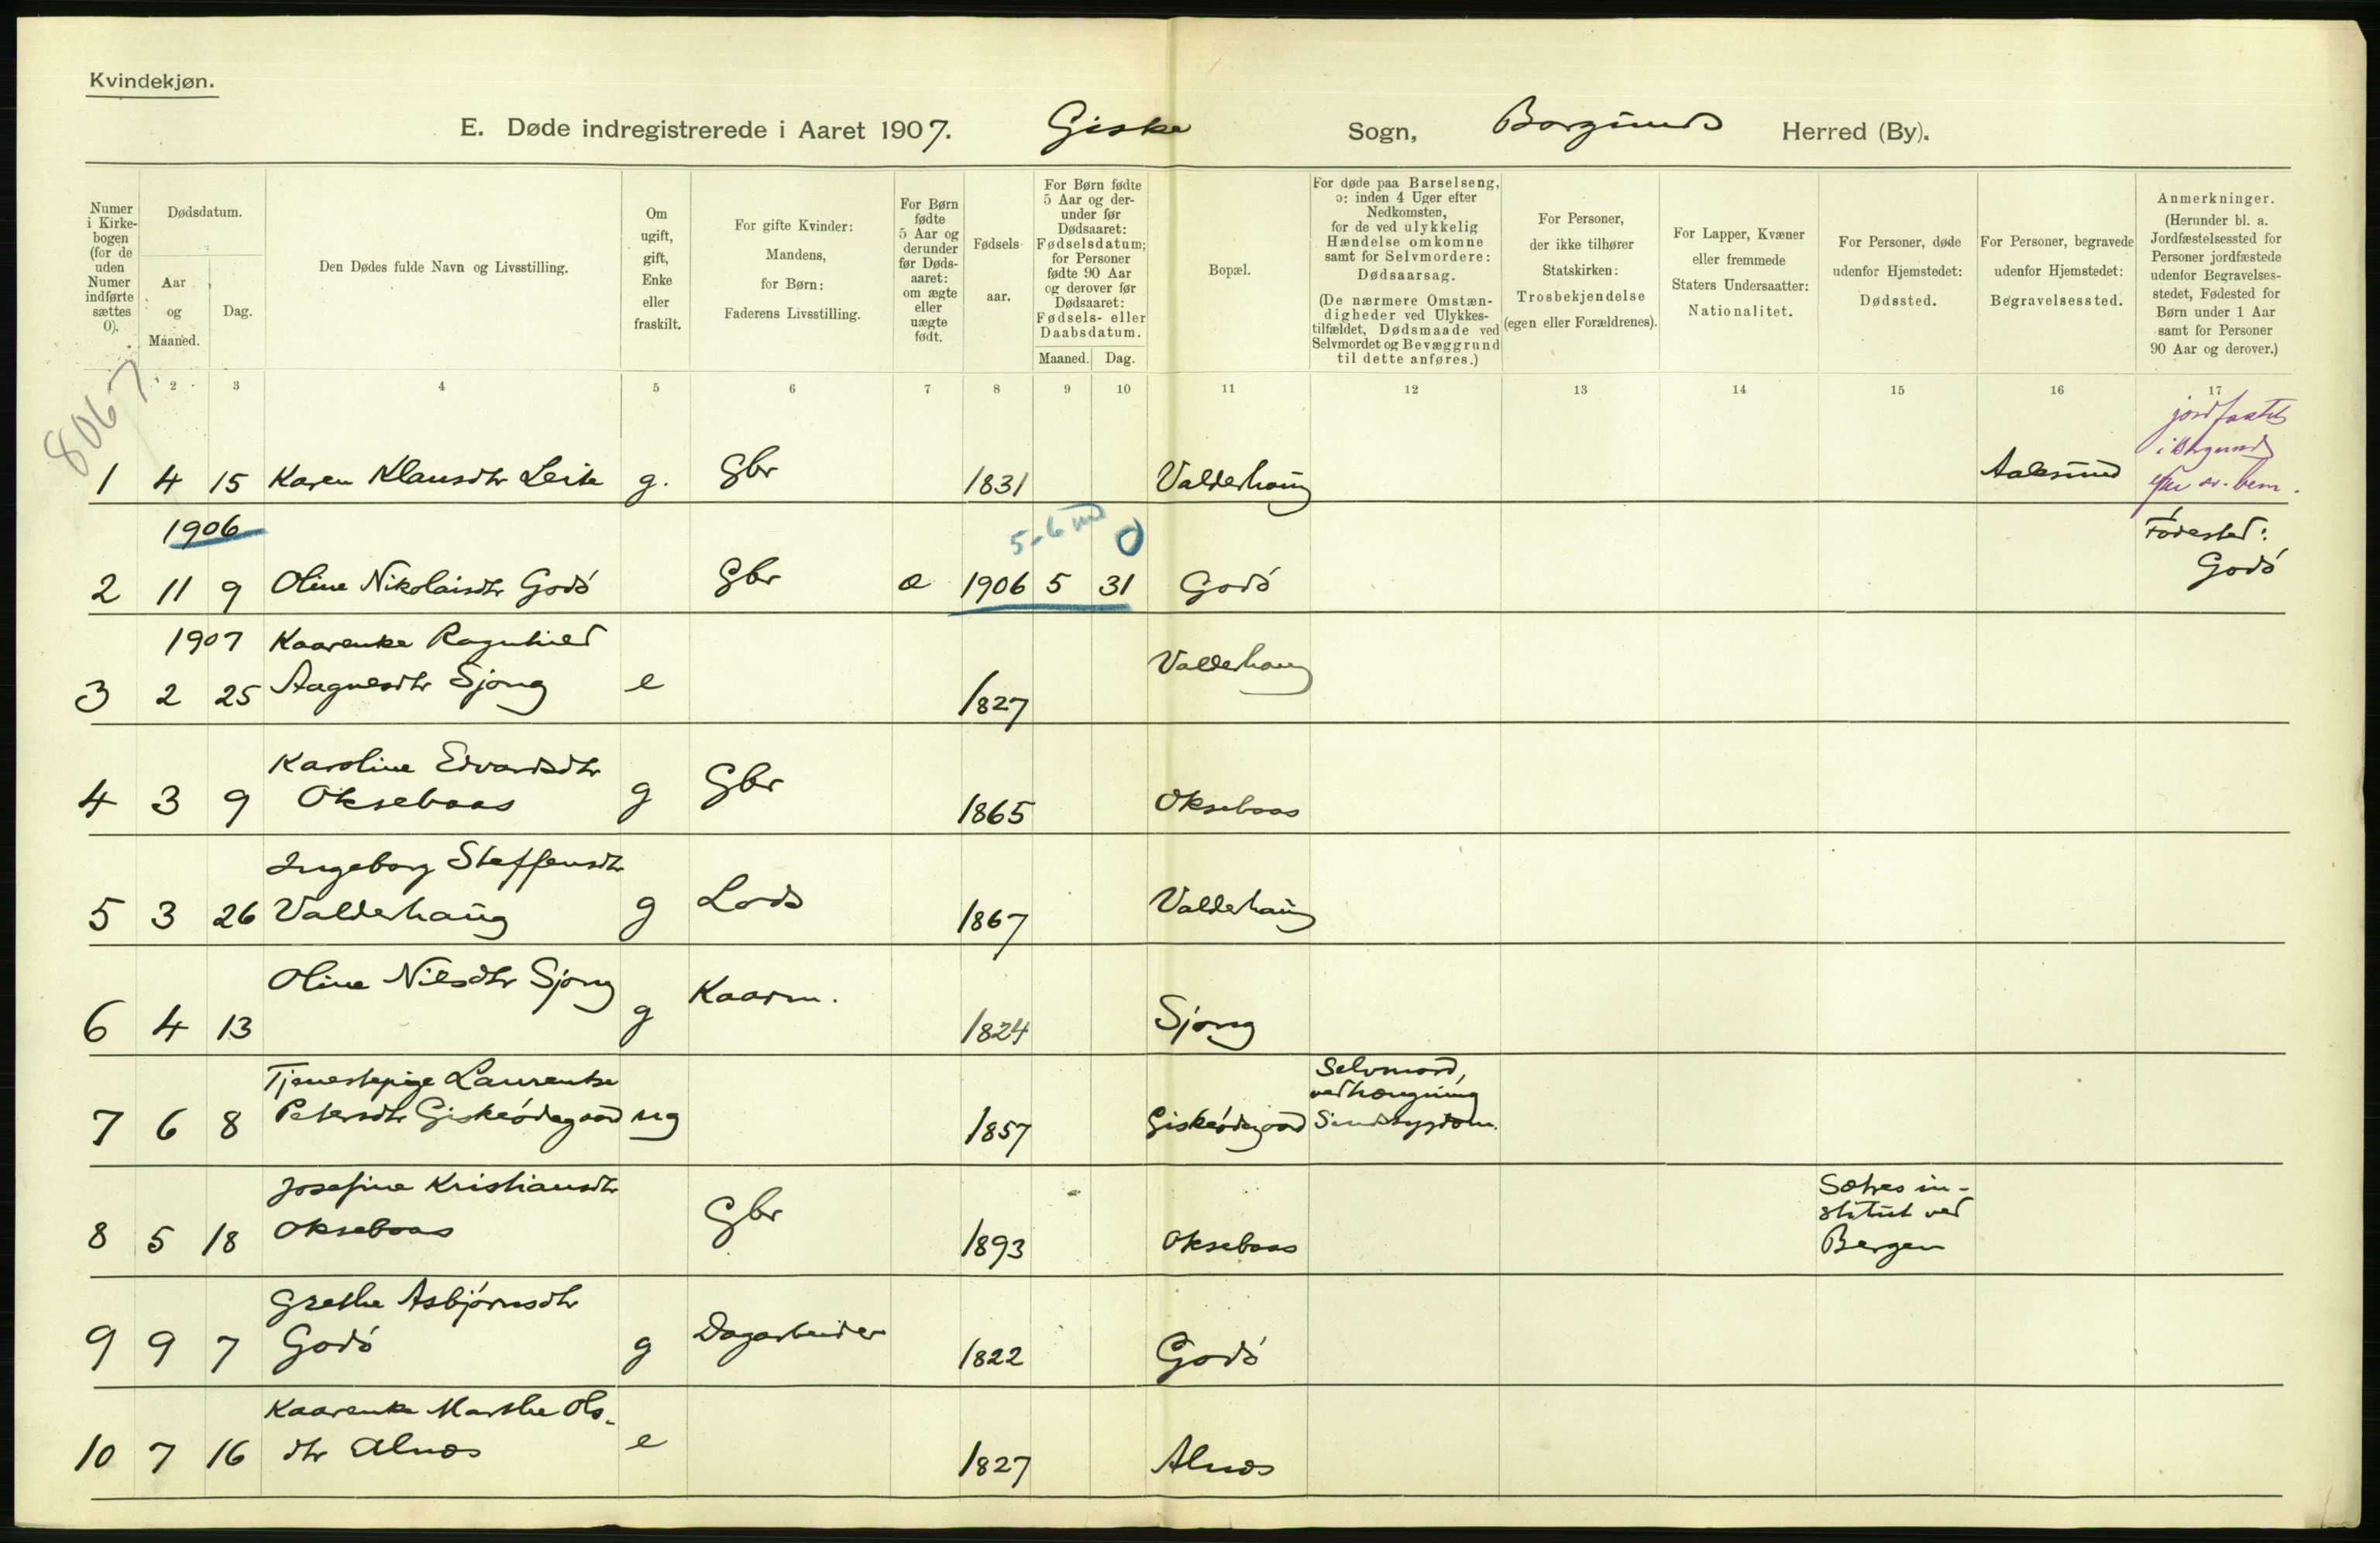 Kvindekjøn.
E. Døde indregistrerede i Aaret 1907. Giske Sogn, Borgund Herred (By).
Numer i Kirkebogen (for de uden Numer indførte sættes 0).
Dødsdatum.
Aar og Maaned.
Dag.
Den Dødes fulde Navn og Livsstilling.
Om ugift, gift, Enke eller fraskilt.
For gifte Kvinder: Mandens, for Børn: Faderens Livsstilling.
For Børn fødte 5 Aar og derunder før Dødsaaret: om ægte eller uægte født.
Fødselsaar.
For Børn fødte 5 Aar og derunder før Dødsaaret: Fødselsdatum; for Personer fødte 90 Aar og derover før Dødsaaret: Fødsels- eller Daabsdatum.
Maaned. Dag.
Bopæl.
For døde paa Barselseng, ɔ: inden 4 Uger efter Nedkomsten, for de ved ulykkelig Hændelse omkomne samt for Selvmordere: Dødsaarsag.
(De nærmere Omstændigheder ved Ulykkestilfældet, Dødsmaade ved Selvmordet og Bevæggrund til dette anføres.)
For Personer, der ikke tilhører Statskirken: Trosbekjendelse (egen eller Forældrenes).
For Lapper, Kvæner eller fremmede Staters Undersaatter: Nationalitet.
For Personer, døde udenfor Hjemstedet: Dødssted.
For Personer, begravede udenfor Hjemstedet: Begravelsessted.
Anmerkninger.
(Herunder bl. a. Jordfæstelsessted for Personer jordfæstede udenfor Begravelsesstedet, Fødested for Børn under 1 Aar samt for Personer 90 Aar og derover.)
2 3 4 5 6 7 8 9 10 11 12 13 14 15 16 17
8067
jordfæstet
i Borgund
1 4 15 Karen Klausdtr Leite g. Gbr 1831 Valderhaug Aalesund
1906 5-6 md Fødested:
2 11 9 Oline Nikolaisdtr Godø Gbr æ 1906 5 31 Godø Godø
1907 Kaarenke Ragnhild
3 2 25 Aagnesdtr Sjong e 1827 Valderhaug
Karoline Edvardsdtr
4 3 9 Oksebaas g Gbr 1865 Oksebaas
Ingeborg Steffensdtr
5 3 26 Valderhaug g Lods 1867 Valderhaug
Oline Nilsdtr Sjong
6 4 13 g Kaarm. 1824 Sjong
Tjenestepige Laurentse Selvmord,
ved hængning
7 6 8 Petersdtr Giskeødegaard ug 1857 Giskeødegaard Sindssygdom.
Josefine Kristiansdtr Sætres in-
stitut ved
8 5 18 Oksebaas Gbr 1893 Oksebaas Bergen
Grethe Asbjørnsdtr
9 9 7 Godø g Dagarbeider 1822 Godø
Kaarenke Marthe Ols-
10 7 16 dtr Alnæs e 1827 Alnæs